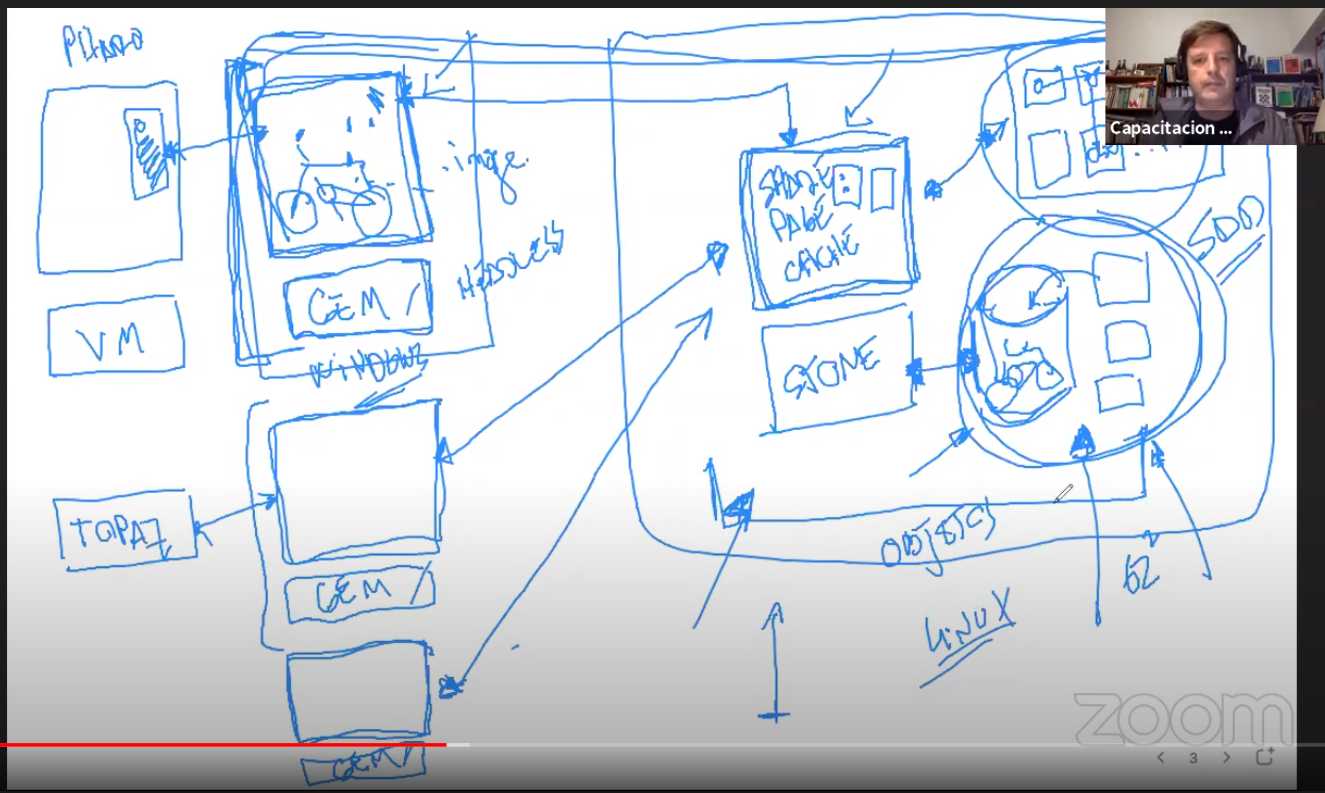 PHARO
VM
.image
HEADLESS
GEM
WINDOWS
TOPAZ
GEM
GEM
SHARE
PAGE
CACHE
STONE
SDD
OBJETCS
LINUX
Capacitacion ...
zoom
3